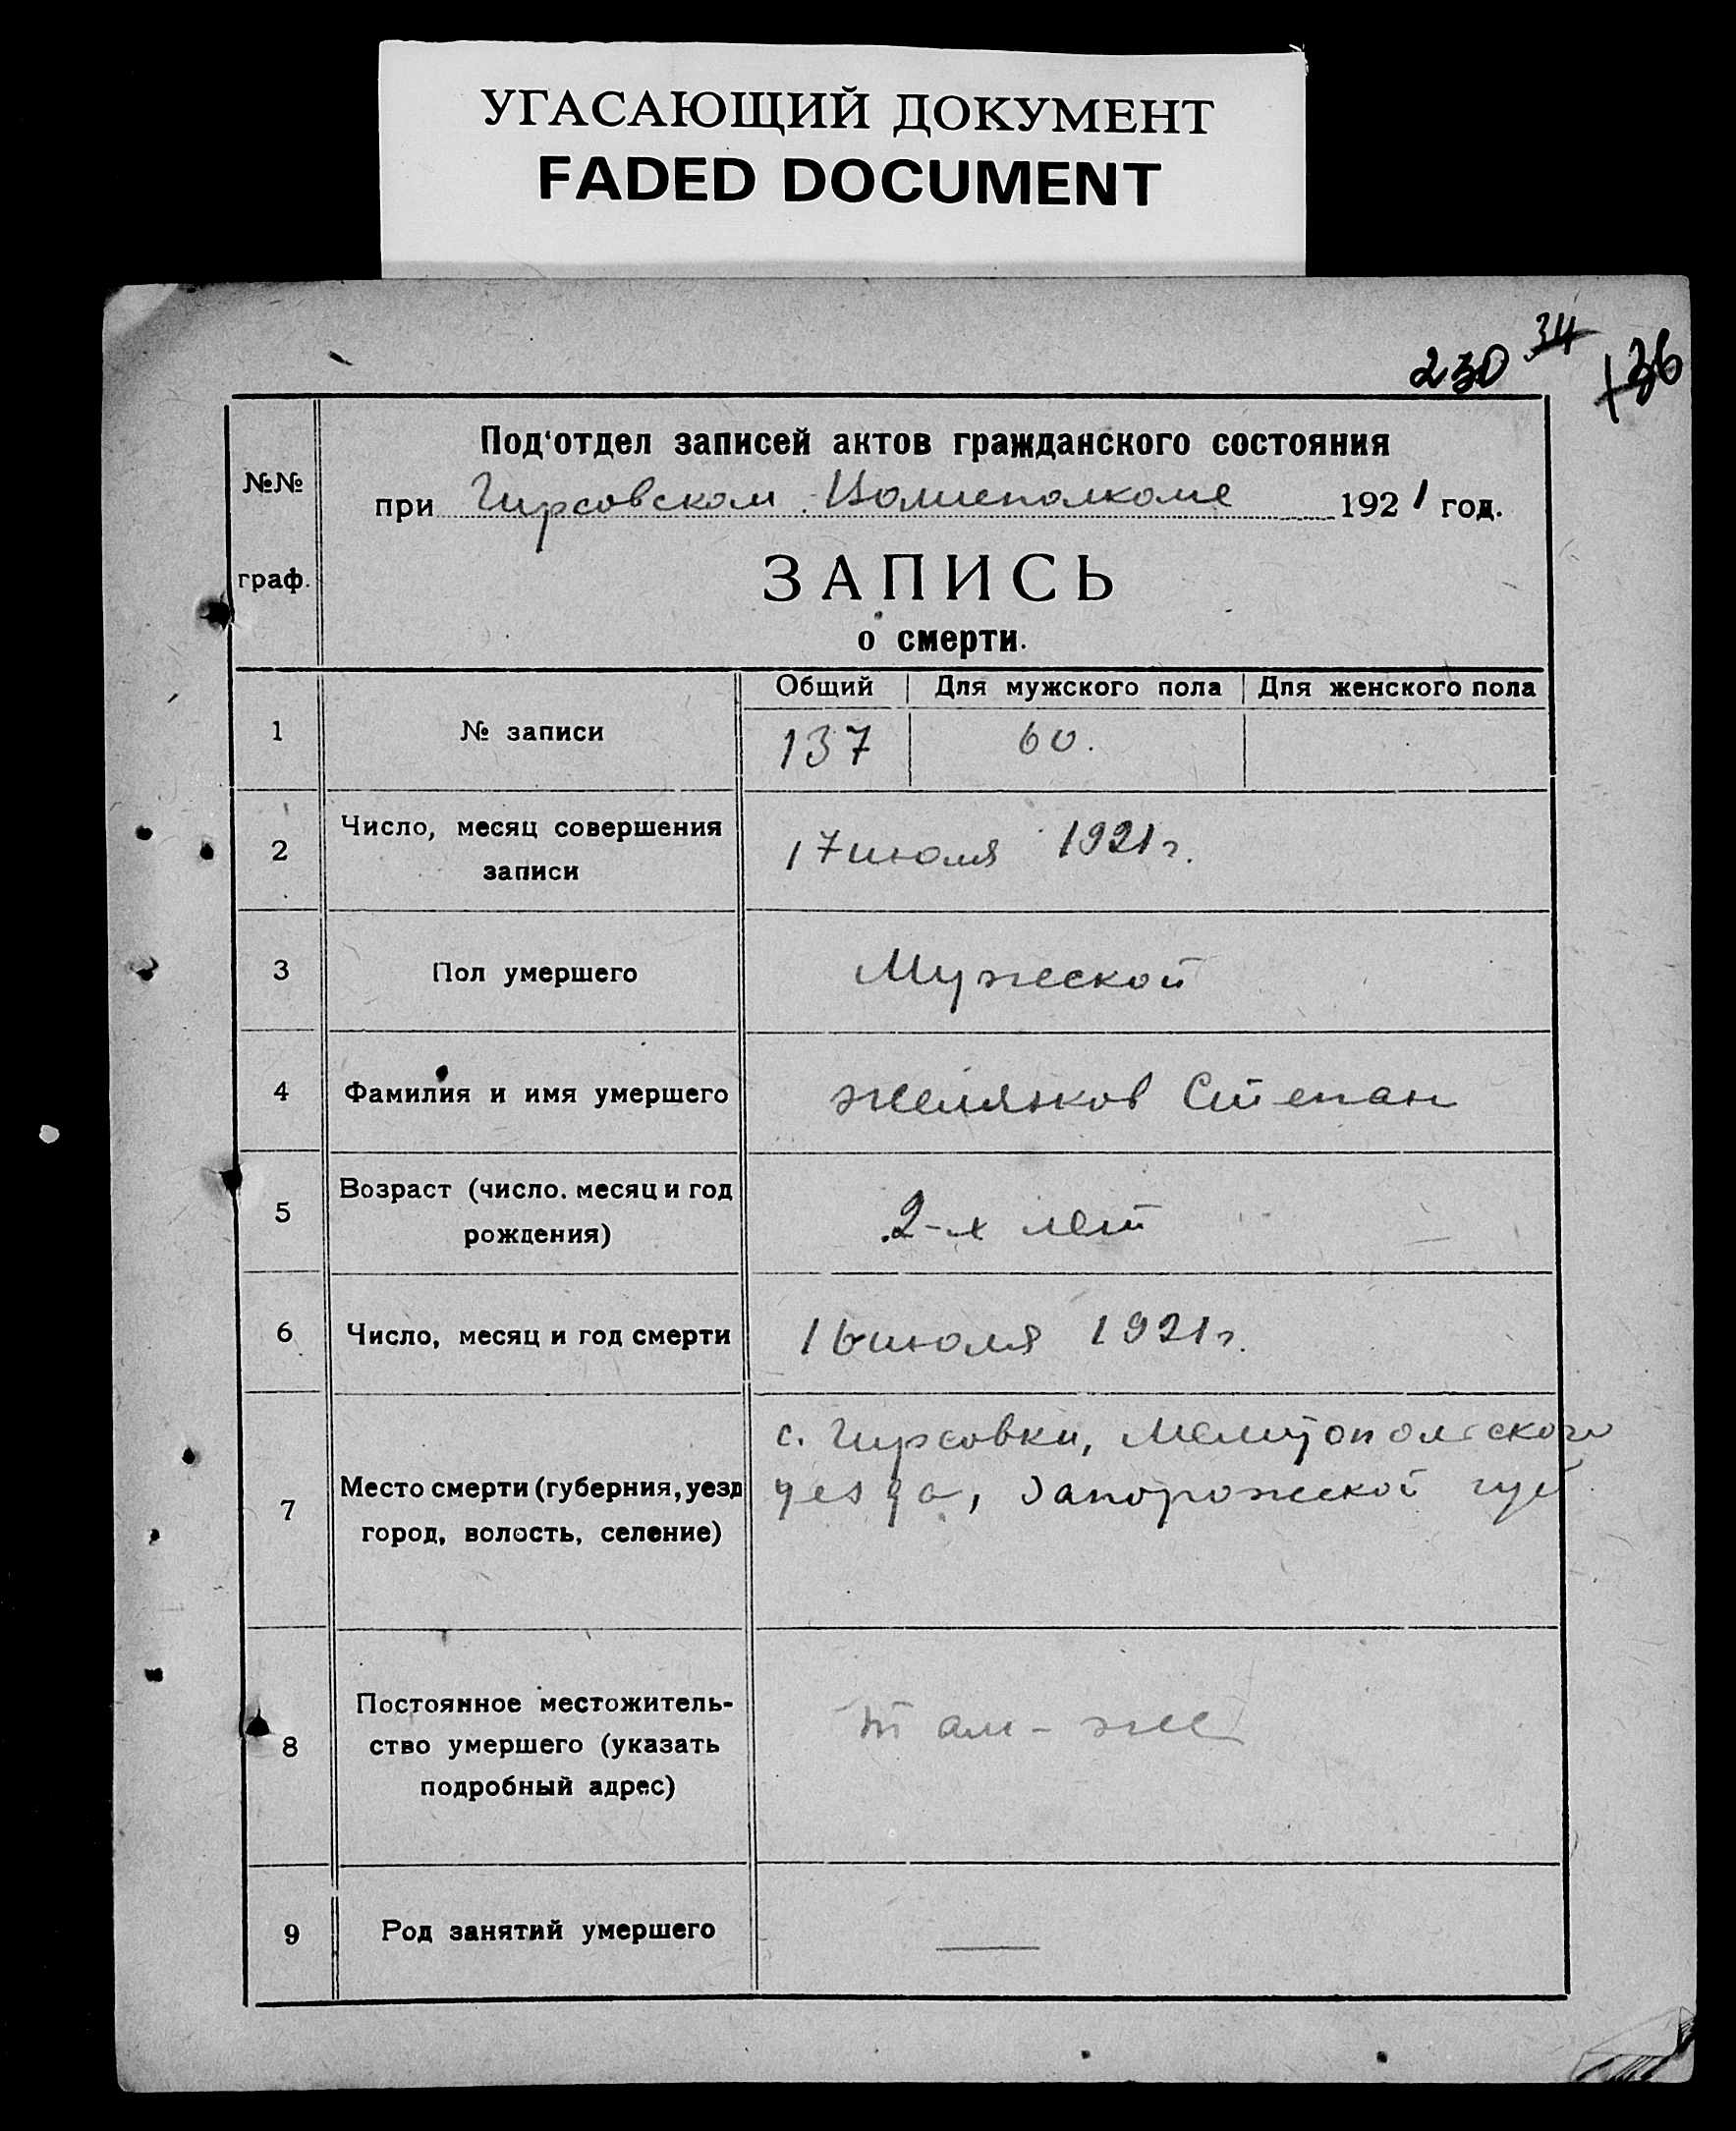 УГАСАЮЩИЙ ДОКУМЕНТ
FADED DOCUMENT
230 34 136
№№
граф.
Под'отдел записей актов гражданского состояния
при Гирсовском Волисполкоме 1921 год.
ЗАПИСЬ
о смерти.
Общий Для мужского пола Для женского пола
1 № записи 137 60.
2 Число, месяц совершения
записи
17 июля 1921 г.
3 Пол умершего Мужеской
4 Фамилия и имя умершего Желязков Степан
5 Возраст (число. месяц и год
рождения)
2-х лет
6 Число, месяц и год смерти 16 июля 1921 г.
7 Место смерти (губерния, уезд
город, волость, селение)
с. Гирсовки, Мелитопольского
уезда, Запорожской губ
8 Постоянное местожитель-
ство умершего (указать
подробный адрес)
там-же
9 Род занятий умершего —